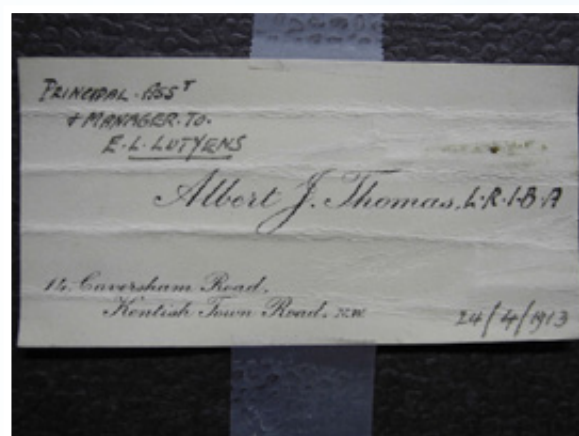 PRINCIPAL·ASST
+ MANAGER·TO·
E·L·LUTYENS
Albert J. Thomas, L·R·I·B·A
14, Caversham Road,
Kentish Town Road, N.W.
24/4/1913